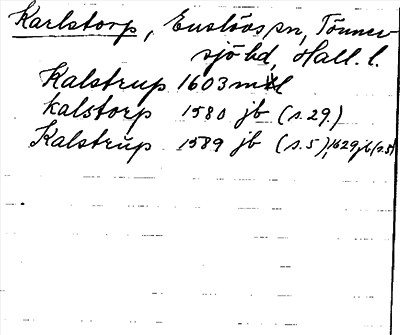 Karlstorp, Enslövs sn, Tönner-
sjö hd, Hall. l.
Kalstrup 1603 mtl
Kalstorp 1580 jb (s. 29.)
Kalstrup 1589 jb (s. 5), 1629 jb (s. 5)